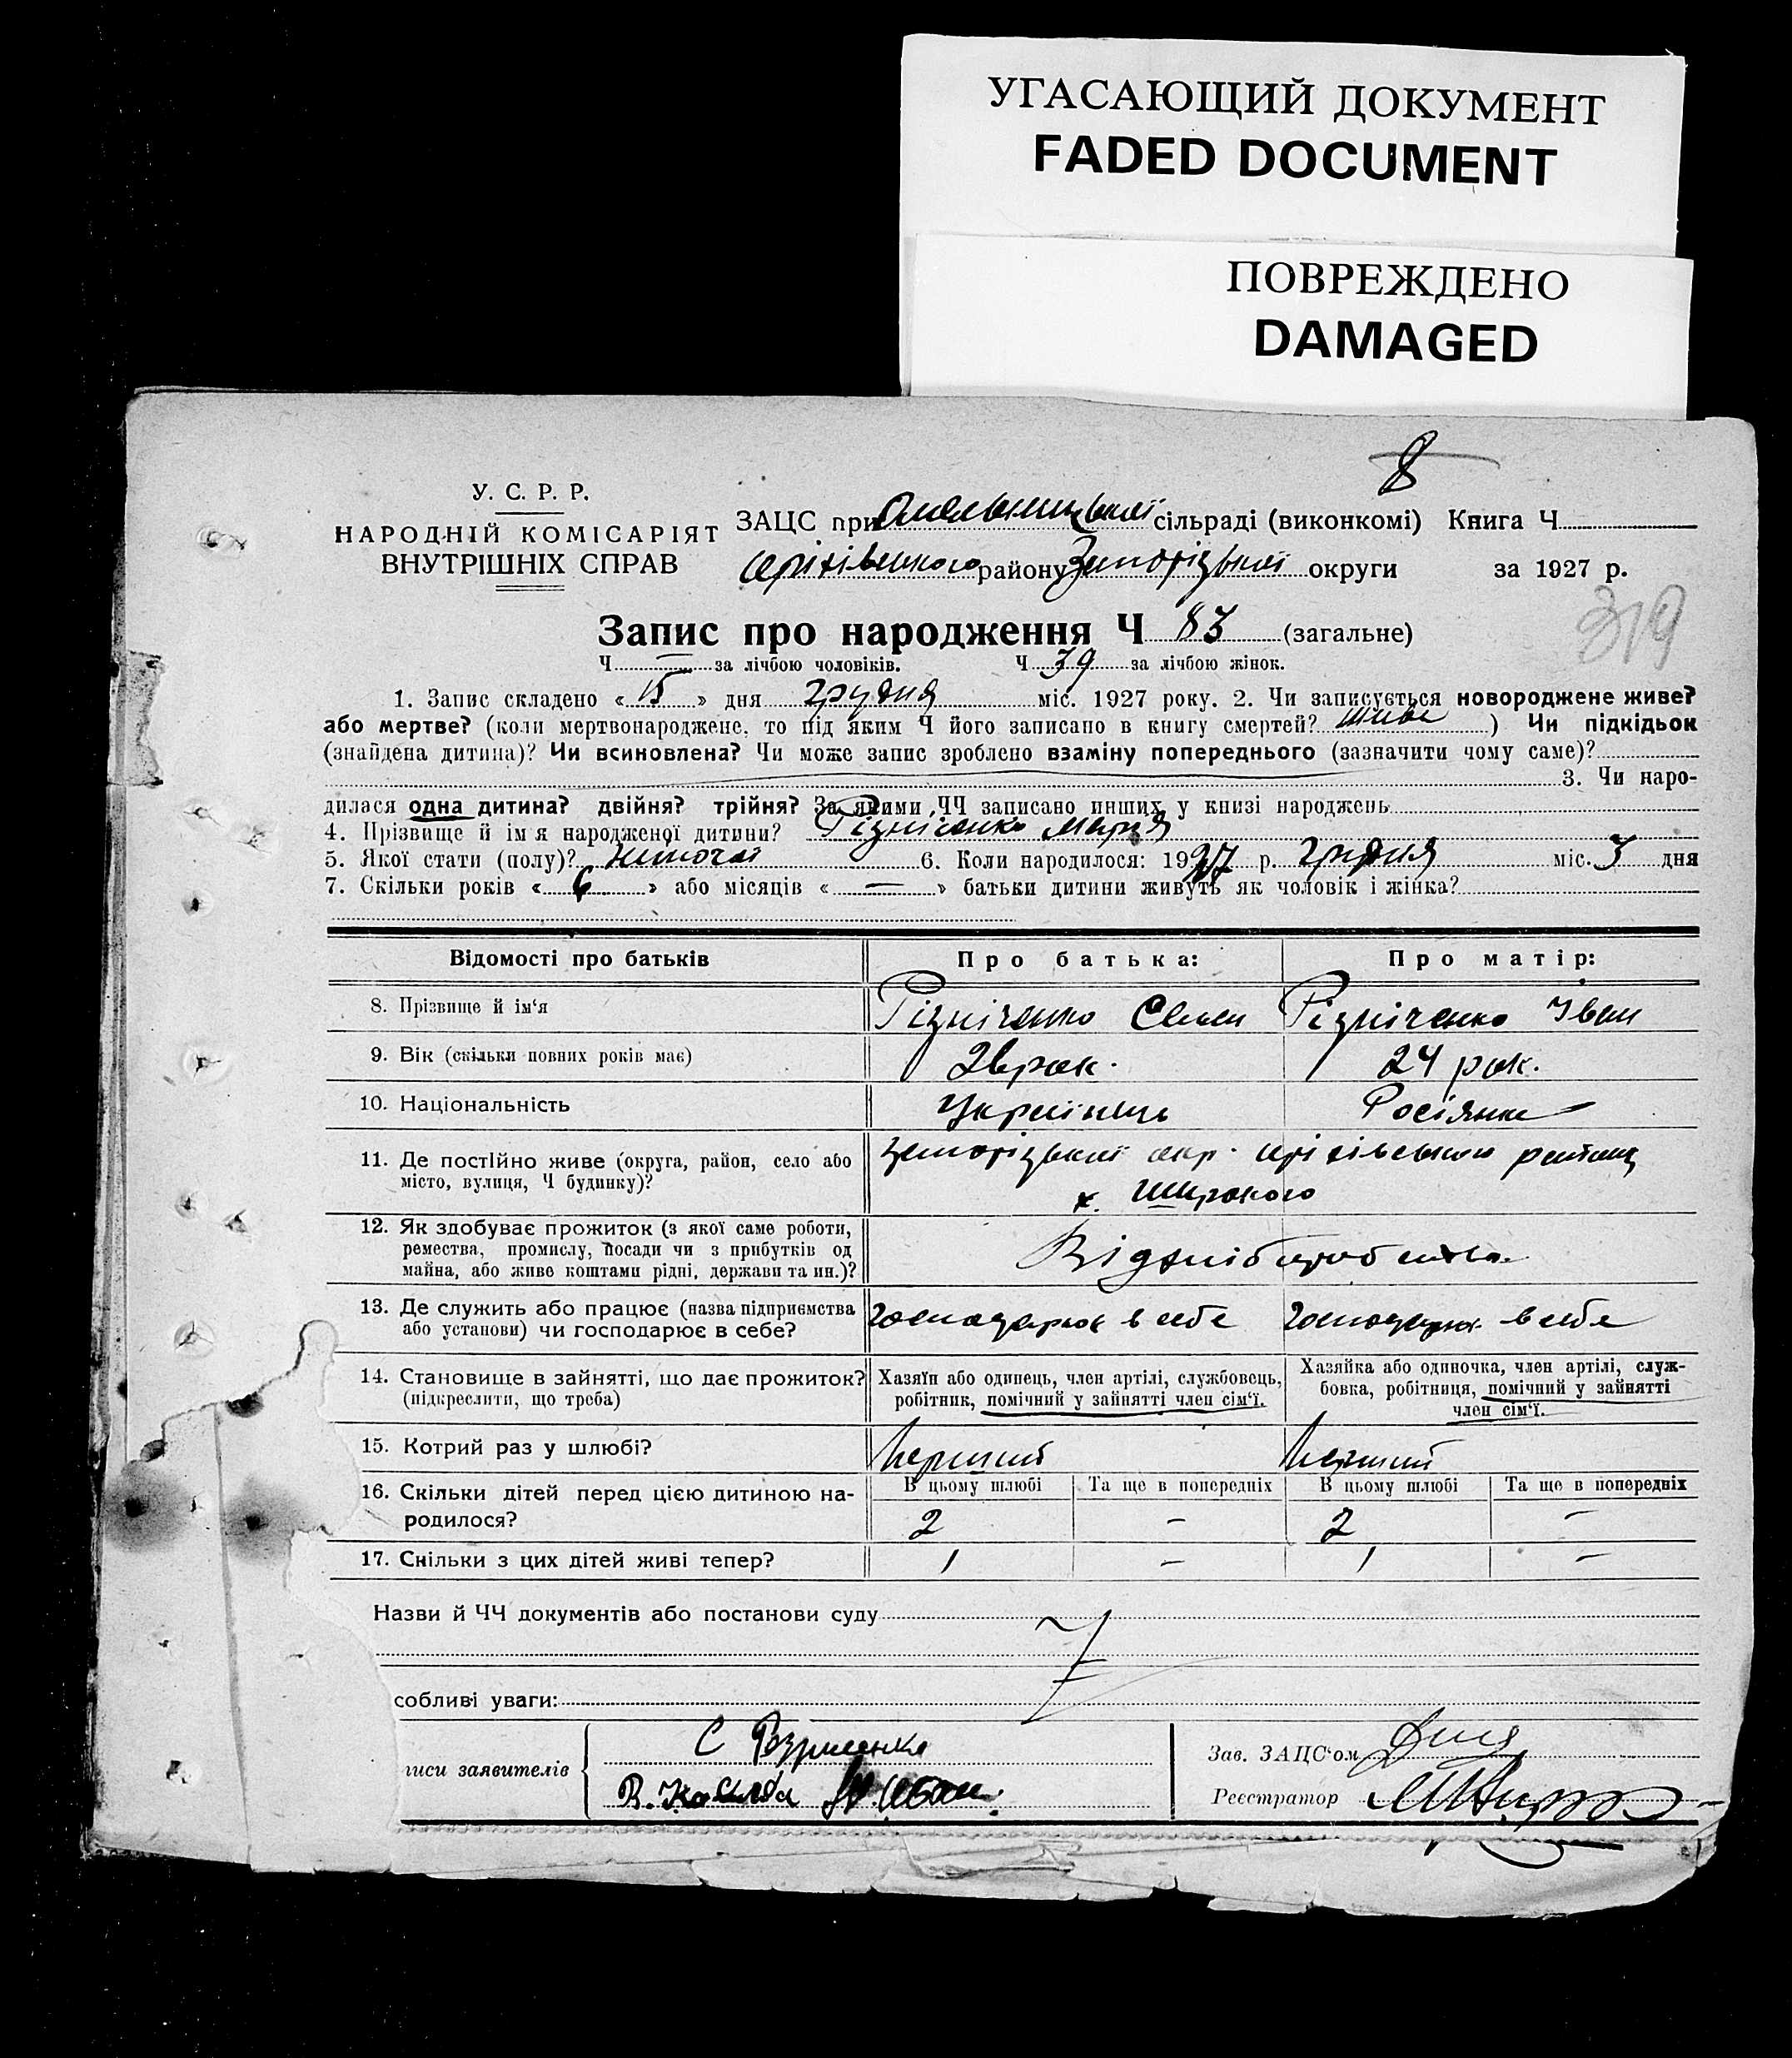 УГАСАЮЩИЙ ДОКУМЕНТ
FADED DOCUMENT
ПОВРЕЖДЕНО
DAMAGED
8
У. С. Р. Р.
НАРОДНІЙ КОМІСАРІЯТ
ВНУТРІШНІХ СПРАВ
ЗАЦС при Омельницької сільраді (виконкомі) Книга Ч
Оріхівського району Запорізької округи за 1927 р.
319
Запис про народження Ч 83 (загальне)
Ч — за лічбою чоловіків. Ч 39 за лічбою жінок.
1. Запис складено «15» дня грудня міс. 1927 року. 2. Чи записується новороджене живе?
або мертве? (коли мертвонароджене, то під яким Ч його записано в книгу смертей? живе ) Чи підкідьок
(знайдена дитина)? Чи всиновлена? Чи може запис зроблено взаміну попереднього (зазначити чому саме)?
3. Чи наро-
дилася одна дитина? двійня? трійня? За якими ЧЧ записано инших у книзі народжень
4. Прізвище й ім я народженої дитини? Різніченко Марія
5. Якої стати (полу)? жіночої 6. Коли народилося: 1927 р. грудня міс. 3 дня
7. Скільки років «6» або місяців «—» батьки дитини живуть як чоловік і жінка?
Відомості про батьків Про батька: Про матір:
8. Прізвище й ім'я Різніченко Семен Різніченко Іван
9. Вік (скільки повних років має) рок. 24 рок.
10. Національність Українець Росіянка
11. Де постійно живе (округа, район, село або Запорізької окр. Оріхівського району
місто, вулиця, Ч будинку)? х. Широкого
12. Як здобуває прожиток (з якої саме роботи,
ремества, промислу, посади чи з прибутків од
майна, або живе коштами рідні, держави та ин.)?
Від хліборобства
13. Де служить або працює (назва підприємства господарює в себе господарює в себе
або установи) чи господарює в себе?
14. Становище в зайнятті, що дає прожиток?
(підкреслити, що треба)
Хазяїн або одинець, член артілі, службовець,
робітник, помічний у зайнятті член сім'ї.
Хазяйка або одиночка, член артілі, служ-
бовка, робітниця, помічний у зайнятті
член сім'ї.
15. Котрий раз у шлюбі? Перший Перший
16. Скільки дітей перед цією дитиною на-
родилося?
В цьому шлюбі Та ще в попередніх В цьому шлюбі Та ще в попередніх
2 — 2 —
17. Скільки з цих дітей живі тепер? 1 — 1 —
Назви й ЧЧ документів або постанови суду
собливі уваги:
писи заявителів
С
В.
Зав. ЗАЦС'ом
Реєстратор